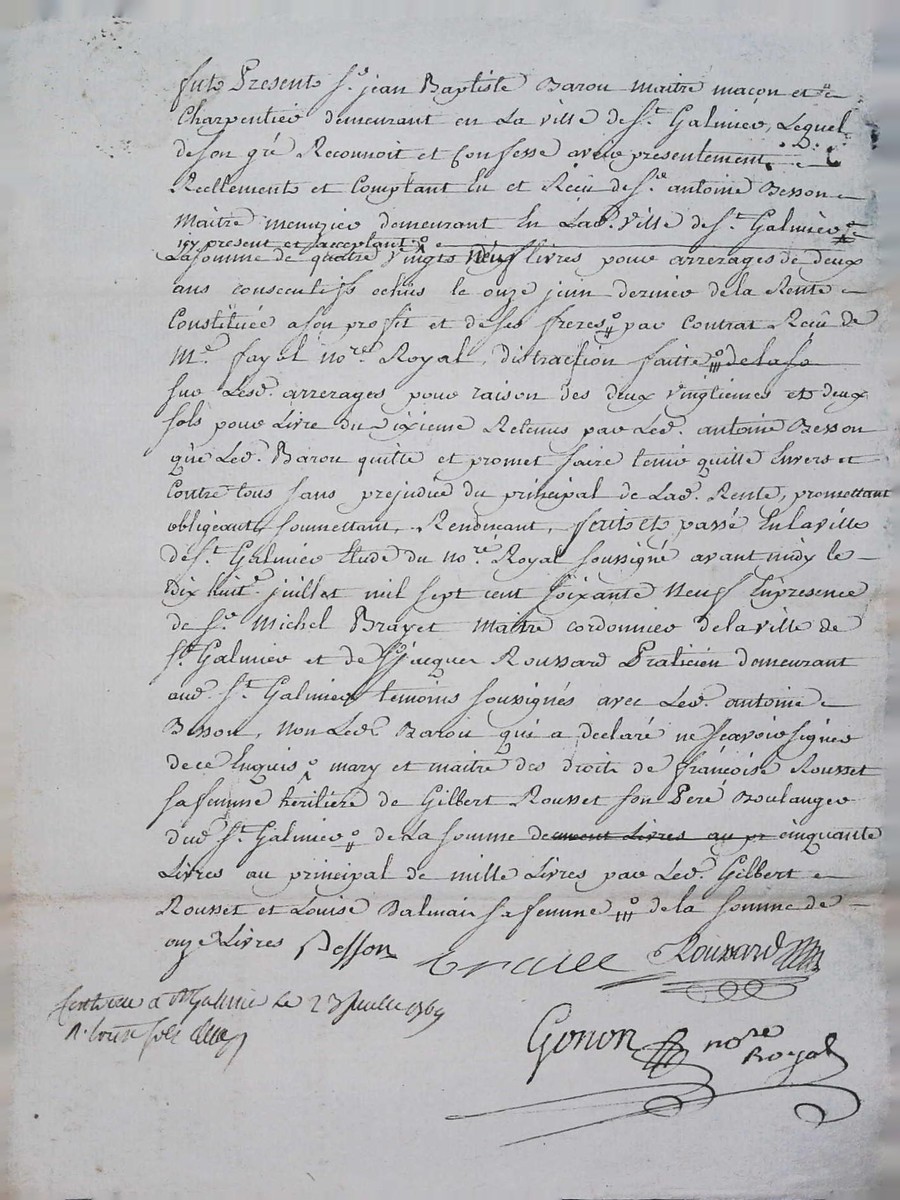 fut Present Sr. jean Baptiste Barou maitre maçon et
Charpentier demeurant en La ville de St. Galmier, Lequel
de son gré Reconnoit et Confesse avoir presentement
Reellement et Comptant Eu et Reçu de Sr. antoine Besson
maitre menuzier demeurant En Lad. ville de St. Galmier
icy present et acceptant
La somme de quatre vingts neuf livres pour arrerages de deux
ans consecutifs echus le onze juin dernier de la Rente
Constituée a son profit et de ses freres par Contrat Reçu de
Me. fayel nore. Royal, distraction faitte de la so
sur Lesd. arrerages pour raison des deux vingtiemes et deux
sols pour Livre du dixieme Retenus par Led. antoine Besson
que Led. Barou quitte et promet faire tenir quitte Envers et
Contre tous sans prejudice du principal de Lad. Rente, promettant
obligeant, soumettant, Renoncant, fait et passé En la ville
de St. Galmier Etude du nore. Royal soussigné avant midy le
Dix huit. juillet mil sept cent soixante Neuf En presence
de Sr. Michel Brayet Maitre cordonnier de la ville de
St. Galmier et de Sr. jacques Roussard Praticien demeurant
aud. St. Galmier temoins soussignés avec Led. antoine
Besson, non Led. Barou qui a declaré ne scavoir signer
de ce Enquis mary et maitre des droits de françoise Rousset
sa femme heritiere de Gilbert Rousset son Pere Boulanger
dud. St. Galmier de La somme de cent Livres au pr cinquante
Livres au principal de mille Livres par Led. Gilbert
Rousset et Louise Balmain sa femme de la somme de
onze Livres Besson
Roussard
Controllé a St Galmier Le 23 Juillet 1769
R. treize sols
Gonon nore
Royal